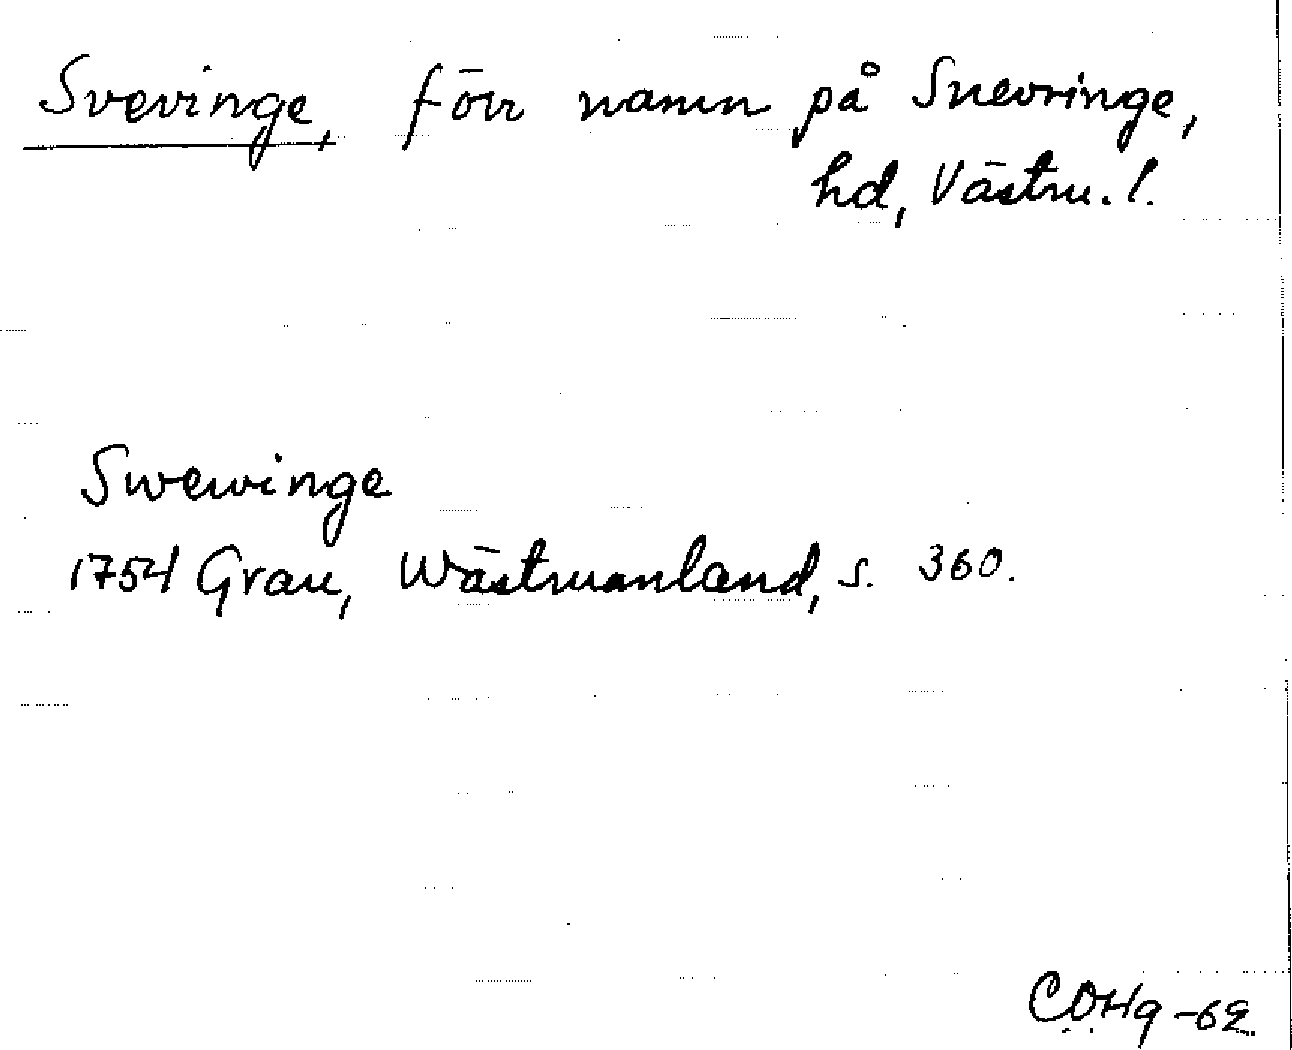 Svevinge, förr namn på Snevringe,
hd, Västm. l.
Swewinge
1754 Grau, Wästmanland, s. 360.
COHg -62